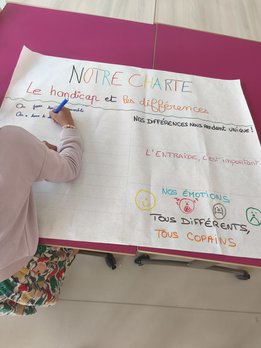 NOTRE CHARTE
Le handicap et les différences
On peut
NOS DIFFÉRENCES NOUS rendent UNIQUE !
On
L'ENTRAÎDE, c'est important
NOS ÉMOTIONS
TOUS DIFFÉRENTS,
TOUS COPAINS